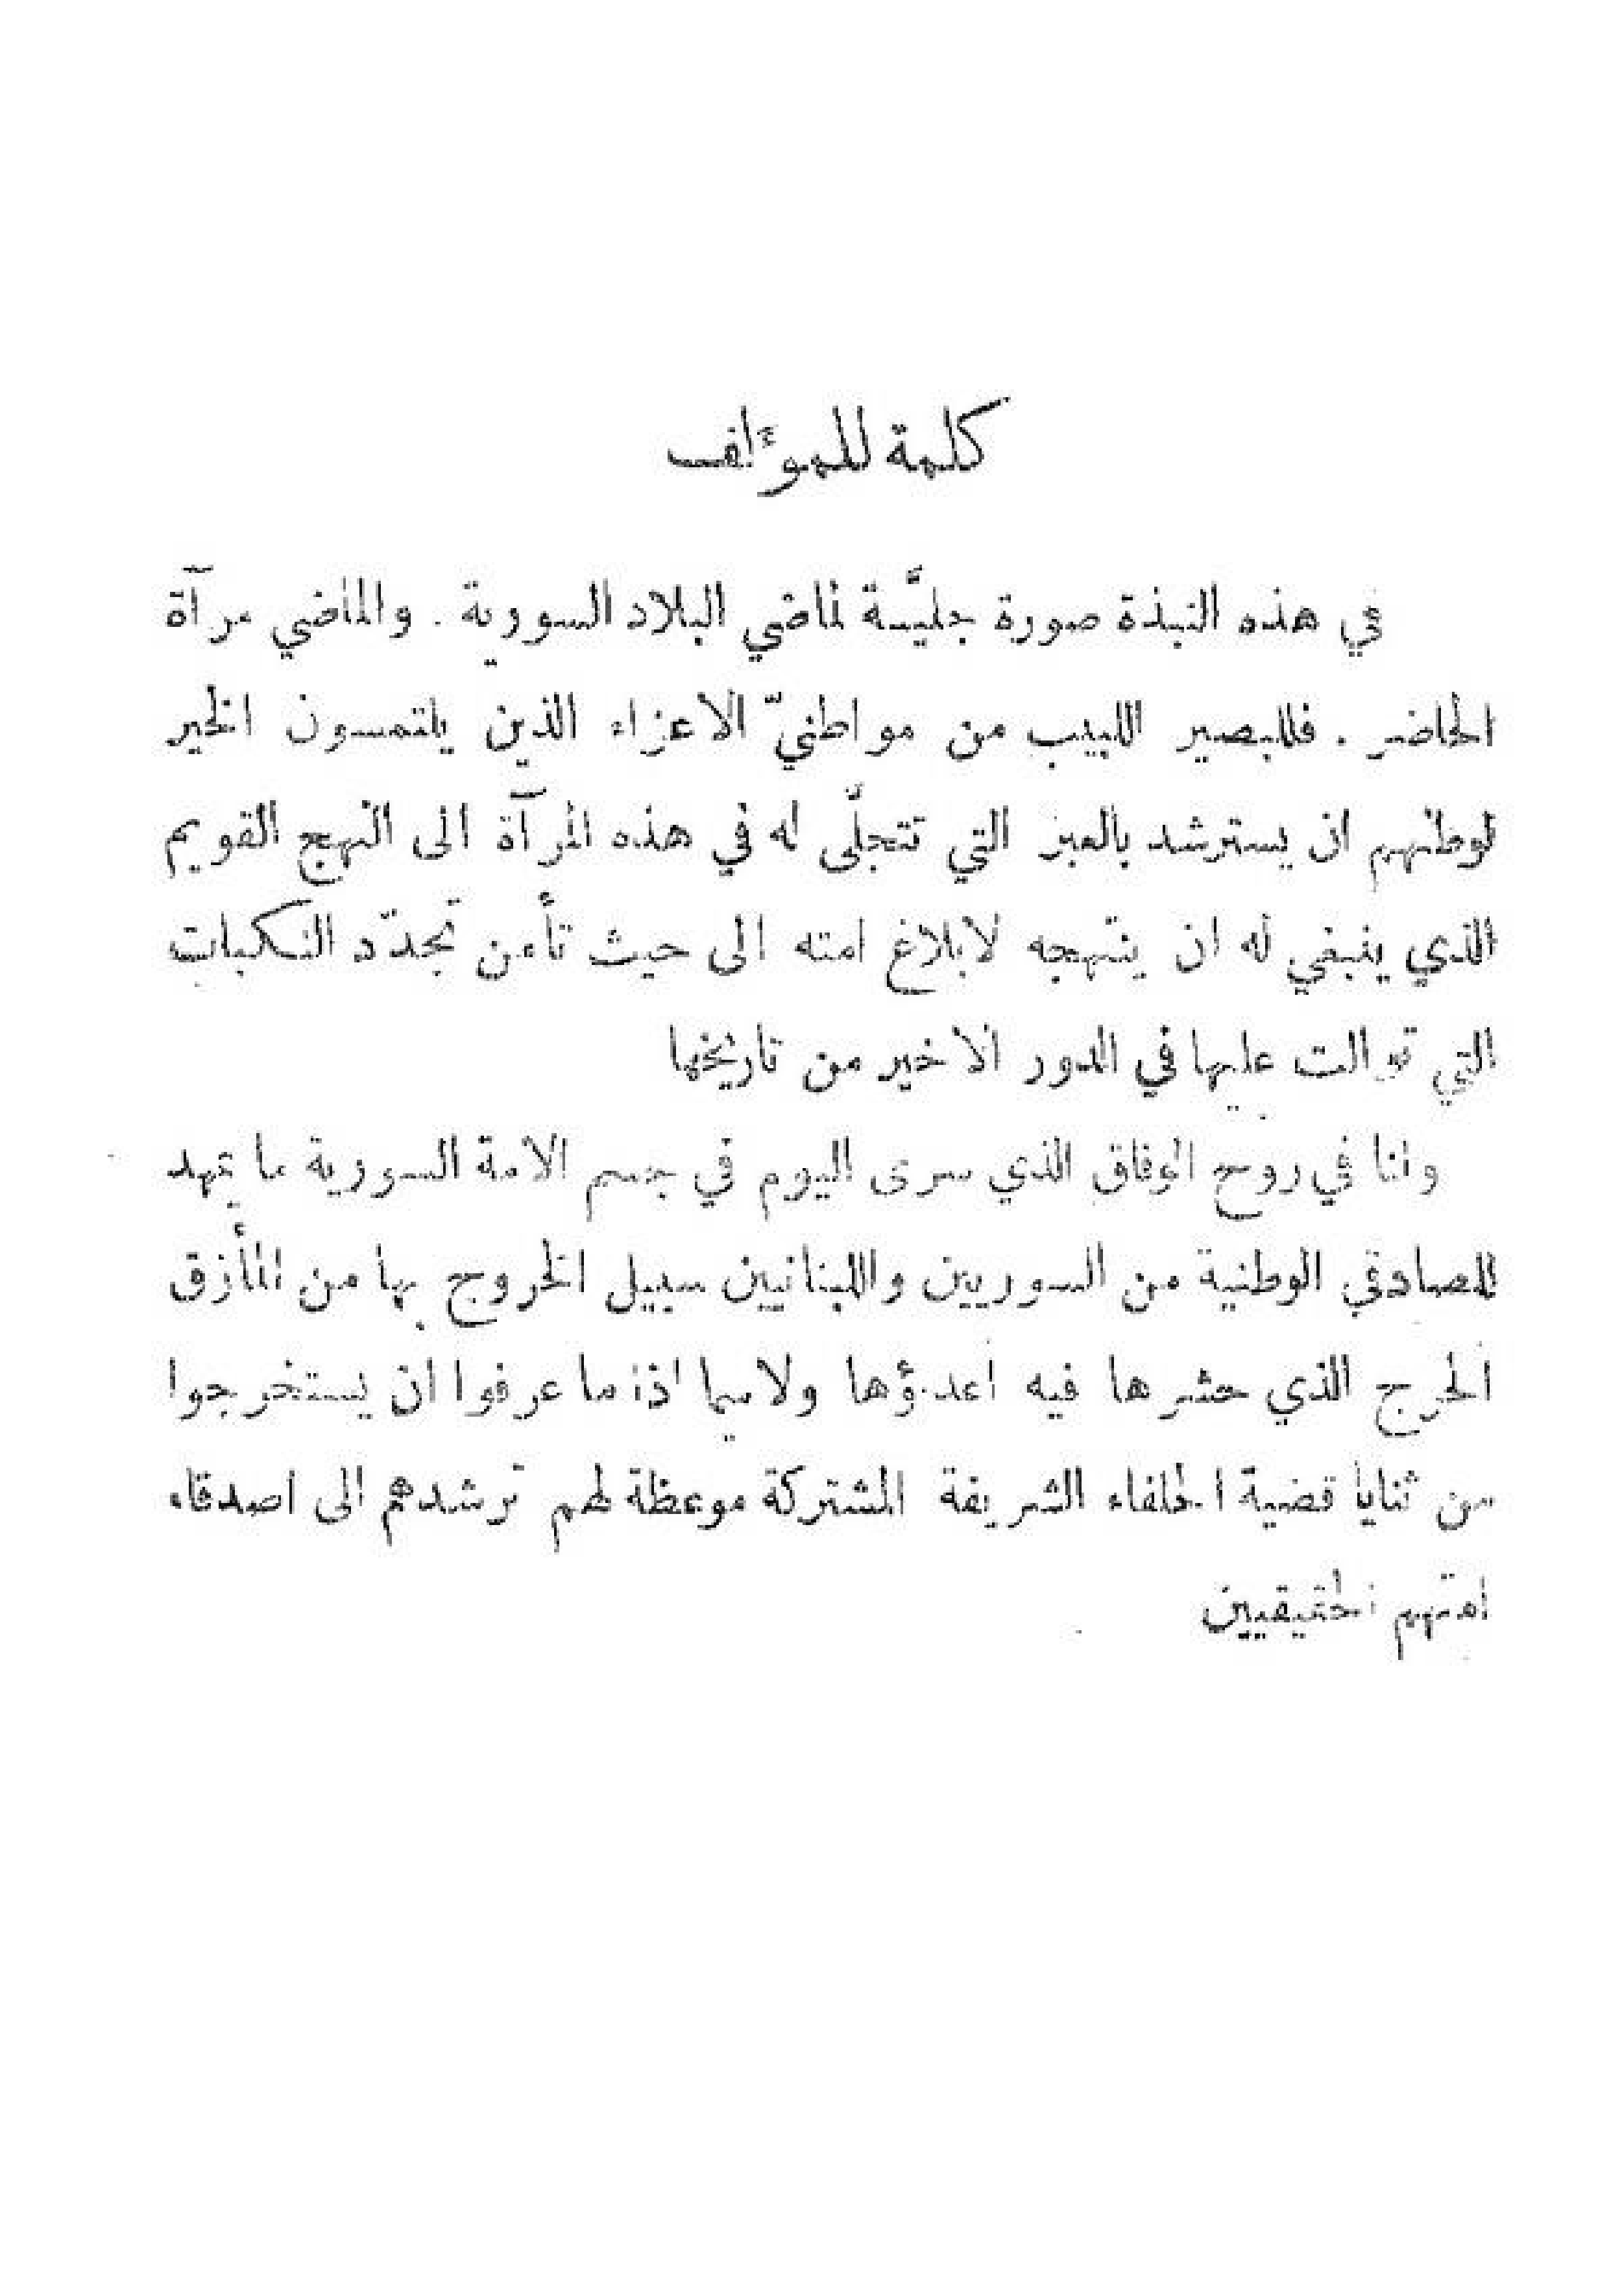 كلمة للموَّلف
في هذه النبذة صورة جليَّة لماضي البلاد السورية . والماضي مرآة
الحاضر . فللبصير اللبيب من مواطنيّ الاعزاء الذين يلتمسون الخير
لوطنهم ان يسترشد بالعبر التي تتجلّى له في هذه المرآة الى النهج القويم
الذي ينبغي له ان ينتهجه لابلاغ امته الى حيث تأمن تجدّد النكبات
التي توالت عليها في الدور الاخير من تاريخها
وانا في روح الوفاق الذي سرى اليوم في جسم الامة السورية ما يمهد
للصادقي الوطنية من السوريين واللبنانيين سبيل الخروج بها من المأزق
الحرج الذي حشرها فيه اعداؤها ولاسيما اذا ما عرفوا ان يستخرجوا
من ثنايا قضية الحلفاء الشريفة المشتركة موعظة لهم ترشدهم الى اصدقاء
امتهم الحقيقيين